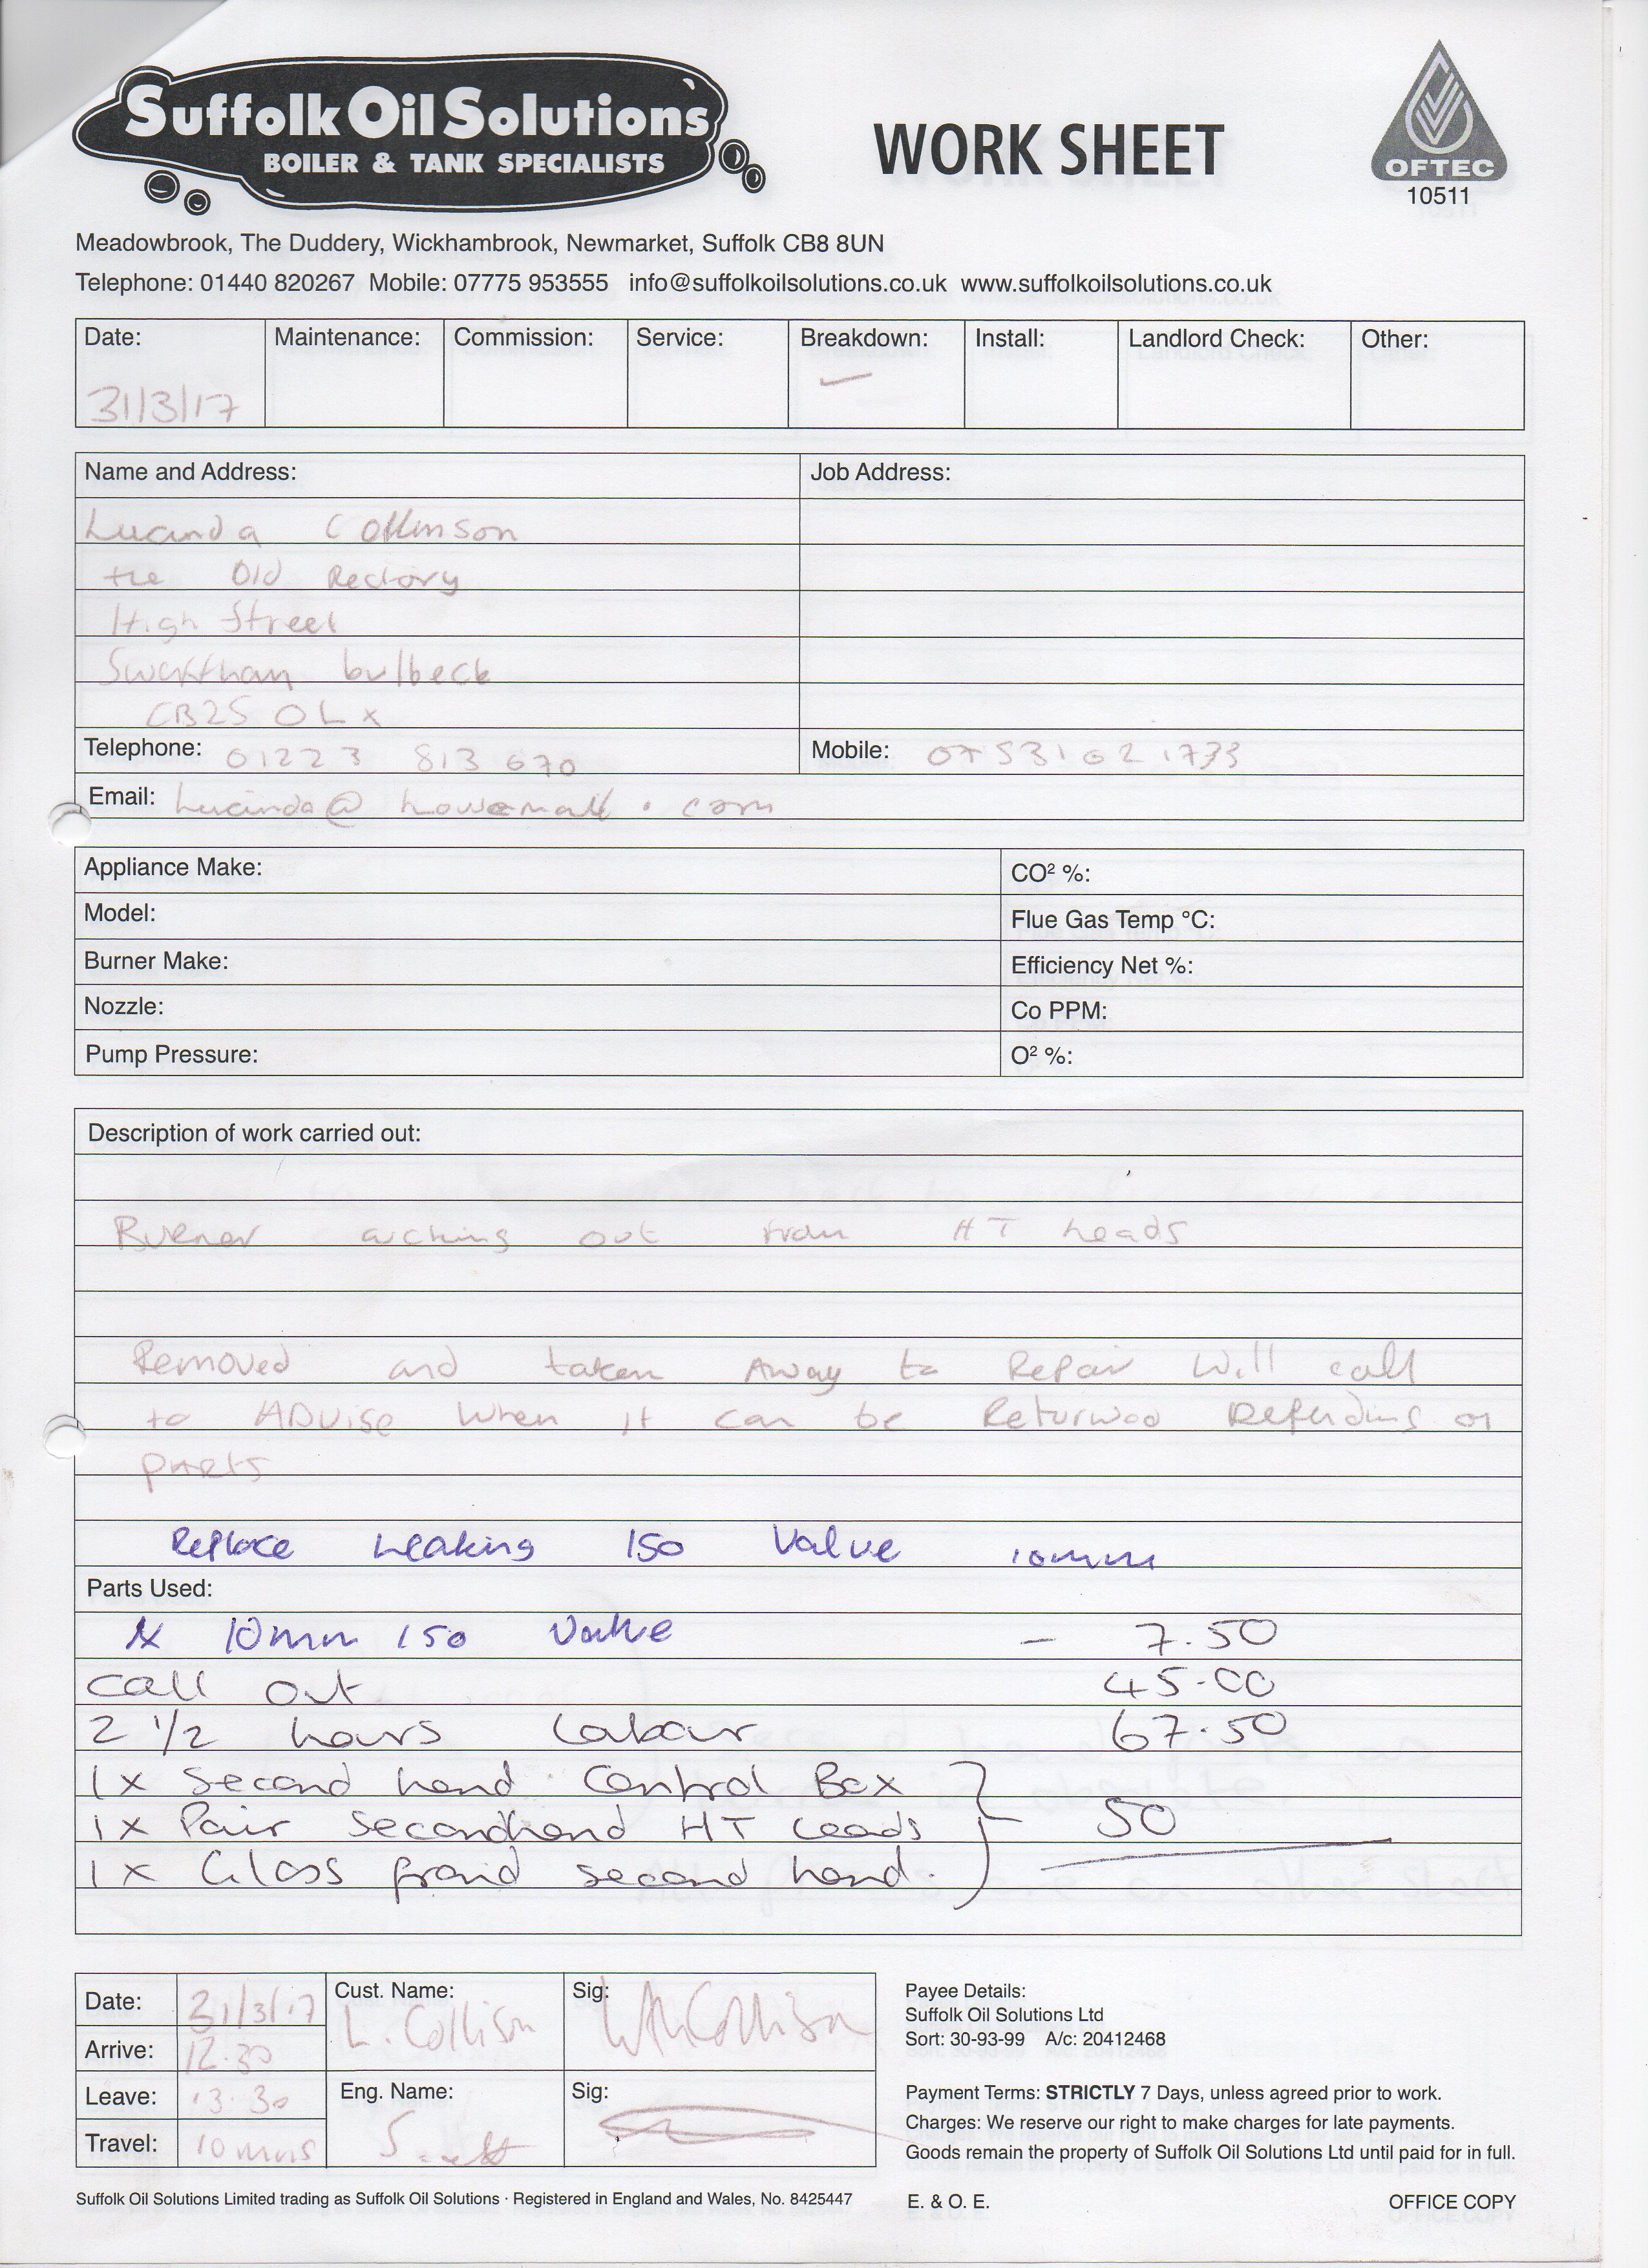 Suffolk Oil Solutions
BOILER & TANK SPECIALISTS
WORK SHEET
OFTEC
10511
Meadowbrook, The Duddery, Wickhambrook, Newmarket, Suffolk CB8 8UN
Telephone: 01440 820267 Mobile: 07775 953555 info@suffolkoilsolutions.co.uk www.suffolkoilsolutions.co.uk
Date: Maintenance: Commission: Service: Breakdown: Install: Landlord Check: Other:
31/3/17
Name and Address: Job Address:
Lucinda Collinson
the Old Rectory
High Street
Swaffham bulbeck
CB25 0Lx
Telephone: 01223 813 670 Mobile: 07531021733
Email: Lucinda@
Appliance Make: CO² %:
Model: Flue Gas Temp °C:
Burner Make: Efficiency Net %:
Nozzle: Co PPM:
Pump Pressure: O² %:
Description of work carried out:
Burner arching out from HT leads
Removed and taken Away to Repair Will call
to ADvise when it can be Returned Depending on
parts
Replace Leaking ISO Valve 10mm
Parts Used:
1x 10mm ISO Valve - 7.50
Call Out 45.00
2 1/2 hours Labour 67.50
1x Second hand Control Box
1x Pair Secondhand HT Leads 50
1x Glass fraid second hand.
Date: 31/3/17 Cust. Name: L. Collison Sig:
Arrive: 12.30
Leave: 13.30 Eng. Name: Sig:
Travel: 10 mins
Payee Details:
Suffolk Oil Solutions Ltd
Sort: 30-93-99 A/c: 20412468
Payment Terms: STRICTLY 7 Days, unless agreed prior to work.
Charges: We reserve our right to make charges for late payments.
Goods remain the property of Suffolk Oil Solutions Ltd until paid for in full.
Suffolk Oil Solutions Limited trading as Suffolk Oil Solutions · Registered in England and Wales, No. 8425447 E. & O. E. OFFICE COPY